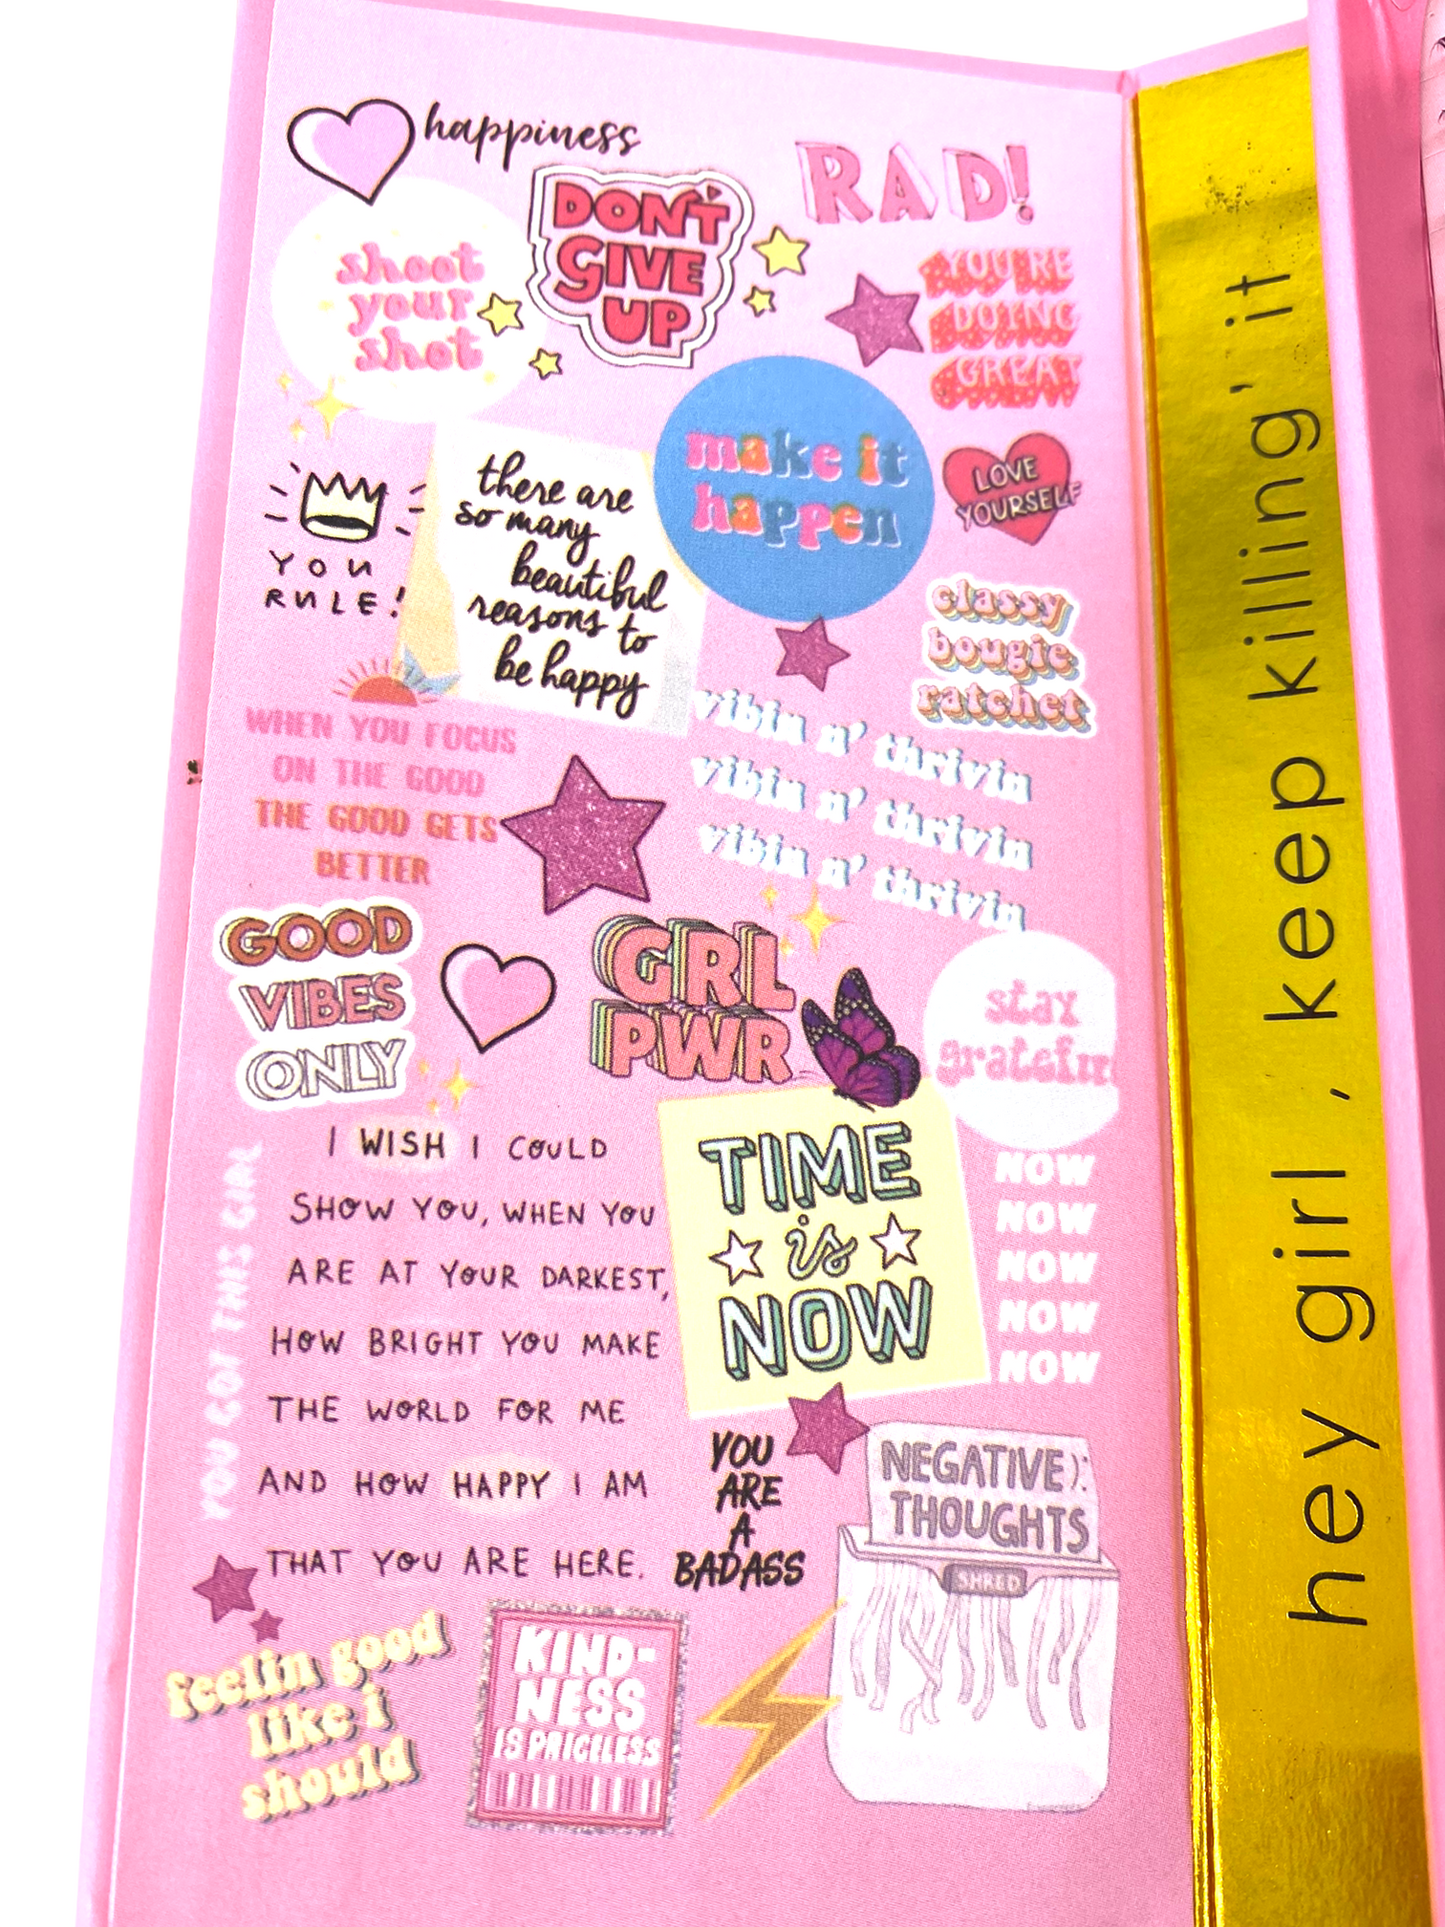 happiness
RAD!
DON'T
GIVE
UP
shoot
your
shot
YOU'RE
DOING
GREAT
make it
happen
LOVE
YOURSELF
there are
so many
beautiful
reasons to
be happy
YOU
RULE!
classy
bougie
ratchet
vibin n' thrivin
vibin n' thrivin
vibin n' thrivin
WHEN YOU FOCUS
ON THE GOOD
THE GOOD GETS
BETTER
GOOD
VIBES
ONLY
GRL
PWR
stay
grateful
I WISH I COULD
SHOW YOU, WHEN YOU
ARE AT YOUR DARKEST,
HOW BRIGHT YOU MAKE
THE WORLD FOR ME
AND HOW HAPPY I AM
THAT YOU ARE HERE.
YOU GOT THIS GIRL
TIME
is
NOW
NOW
NOW
NOW
NOW
NOW
YOU
ARE
A
BADASS
NEGATIVE ):
THOUGHTS
SHRED
feelin good
like i
should
KIND-
NESS
IS PRICELESS
hey girl, keep killing' it